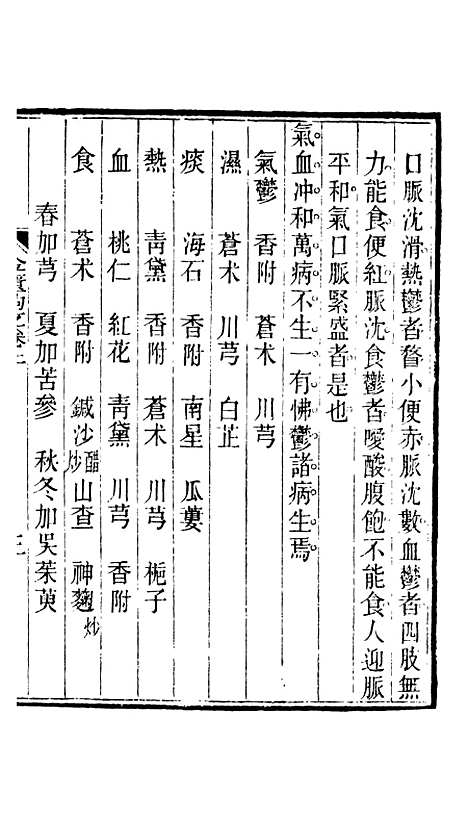 口脈沈滑熱鬱者瞀小便赤脈沈數血鬱者四肢無
力能食便紅脈沈食鬱者噯酸腹飽不能食人迎脈
平和氣口脈緊盛者是也
氣血冲和萬病不生一有怫鬱諸病生焉
氣鬱 香附 蒼术 川芎
濕 蒼术 川芎 白芷
痰 海石 香附 南星 瓜蔞
熱 靑黛 香附 蒼术 川芎 梔子
血 桃仁 紅花 靑黛 川芎 香附
食 蒼术 香附 鍼沙醋炒 山查 神麯炒
春加芎 夏加苦參 秋冬加吳茱萸